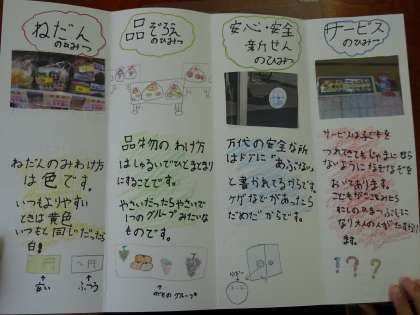 ねだん
のひみつ
ねだんのみわけ方
は色です。
いつもよりやすい
ときは黄色
いつもと同じだったら
白!
安い
ふつう
品ぞろえ
のひみつ
品物のわけ方
はしゅるいでひとまとまり
にすることです。
やさいだったらやさいで
1つのグループみたいな
ものです。
くだものグループ
安心・安全
新せん
のひみつ
万代の安全な所
はドアに「あぶない」
と書かれてるからです。
ケガなどがあったら
だめだからです。
サービス
のひみつ
サービスは子どもを
つれてきてもじゃまになら
ないようになぞなぞを
おいてあります。
こどもがこむから
になり大人の人がたすかり
ます。
!???